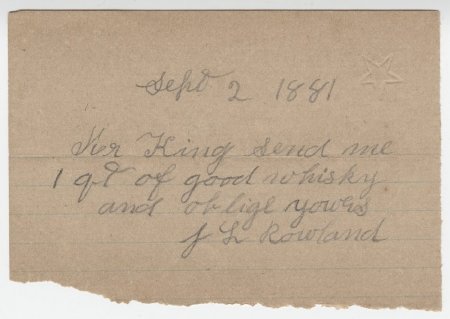 Sept 2 1881
Mr King send me
1 qt of good whisky
and oblige yours
J L Rowland